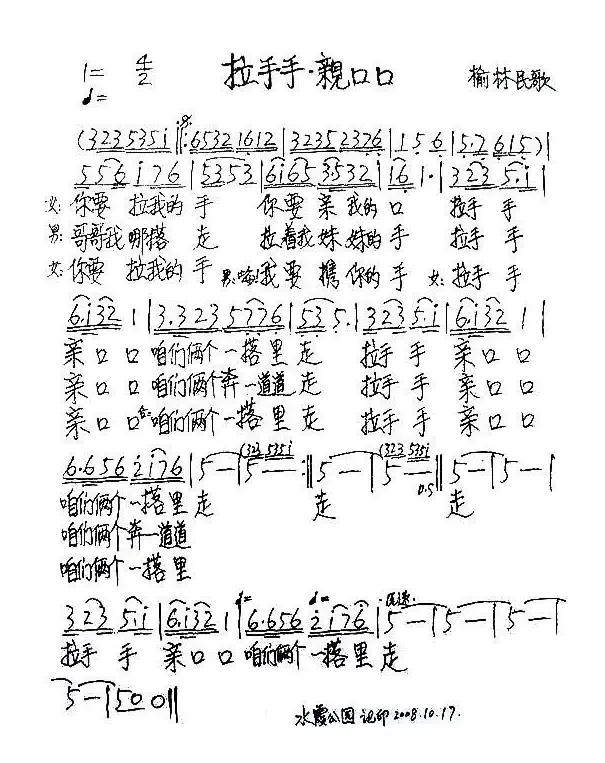 1= 4/2 拉手手·親口口 榆林民歌
♩=
(323 535i ‖: 6532 1612 | 3235 2376 | 1 5 6 | 5·7 615 ) |
556 i 76 | 5353 | 6i65 3·532 | 16 1· | 323 5·i |
女: 你要 拉我的 手 你要 亲 我的 口 拉手 手
男: 哥哥我 哪搭 走 拉着我 妹妹的 手 拉手 手
女: 你要 拉我的 手 男: 我要 携 你的 手 女: 拉手 手
6·i32 1 | 3·323 5776 | 53 5· | 323 5·i | 6·i32 1 |
亲口 口 咱们俩个 一搭里 走 拉手 手 亲口 口
亲口 口 咱们俩个奔 一道道 走 拉手 手 亲口 口
亲口 口 咱们俩个 一搭里 走 拉手 手 亲口 口
6·656 2i76 | 5 — | 5 — (323 535i :‖ 5 — | 5 — (323 535i 0.5 ‖ 5 — | 5 — |
咱们俩个 一搭里 走 走 走
咱们俩个 奔一道道
咱们俩个 一搭里
323 5·i | 6·i32 1 | 6·656 2i76 | 5 — | 5 — | 5 —
拉手 手 亲口 口 咱们俩个 一搭里 走
5 — | 50 0 ‖
水霞公园 记印 2008.10.17.